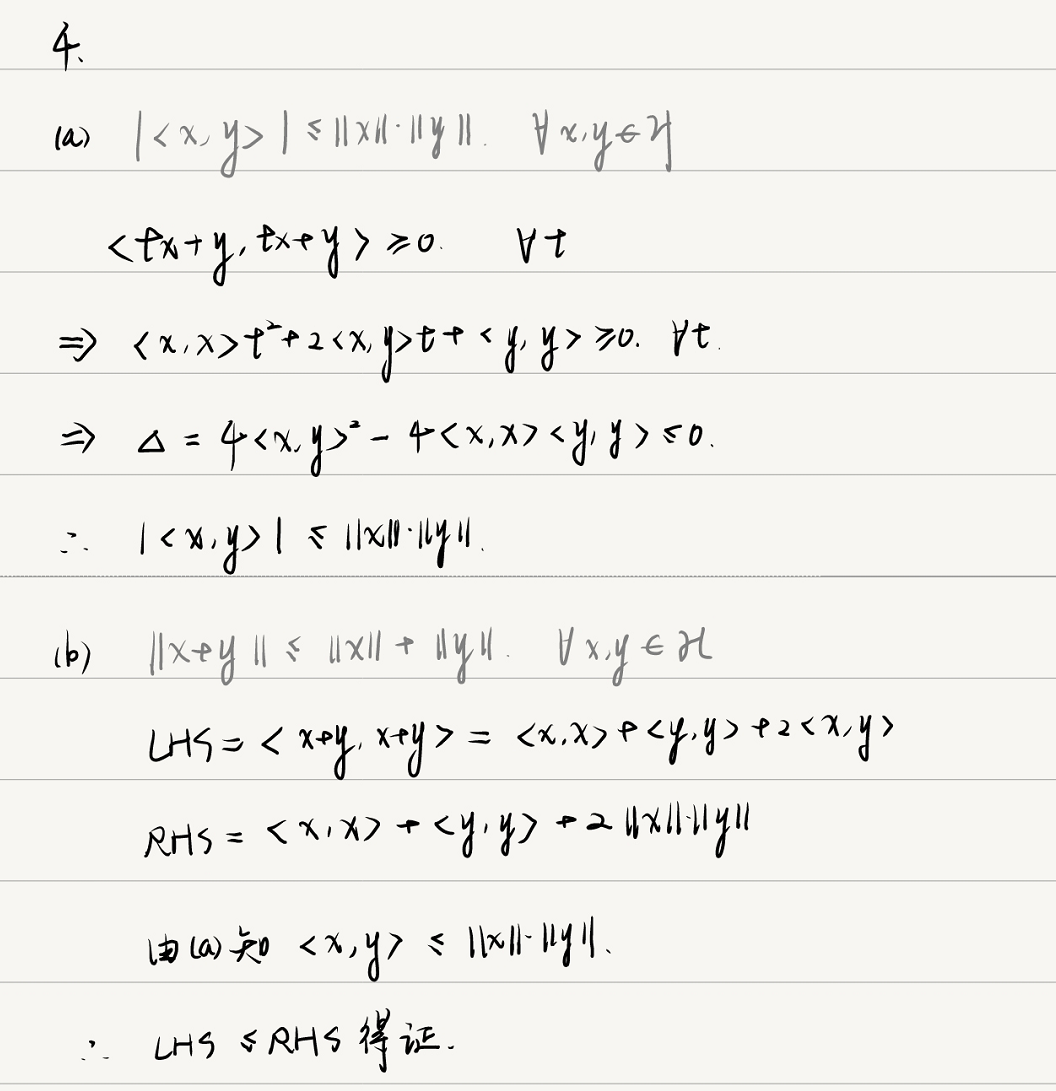 4.
(a) |<x, y>| ≤ ||x||·||y||. ∀ x, y ∈ H
<tx+y, tx+y> ≥ 0. ∀ t
⇒ <x, x>t²+2<x, y>t+<y, y> ≥ 0. ∀t.
⇒ Δ = 4<x, y>² - 4<x, x><y, y> ≤ 0.
∴ |<x, y>| ≤ ||x||·||y||.
(b) ||x+y|| ≤ ||x|| + ||y||. ∀ x, y ∈ H
LHS = <x+y, x+y> = <x, x>+<y, y>+2<x, y>
RHS = <x, x> + <y, y> + 2||x||·||y||
由(a)知 <x, y> ≤ ||x||·||y||.
∴ LHS ≤ RHS 得证.